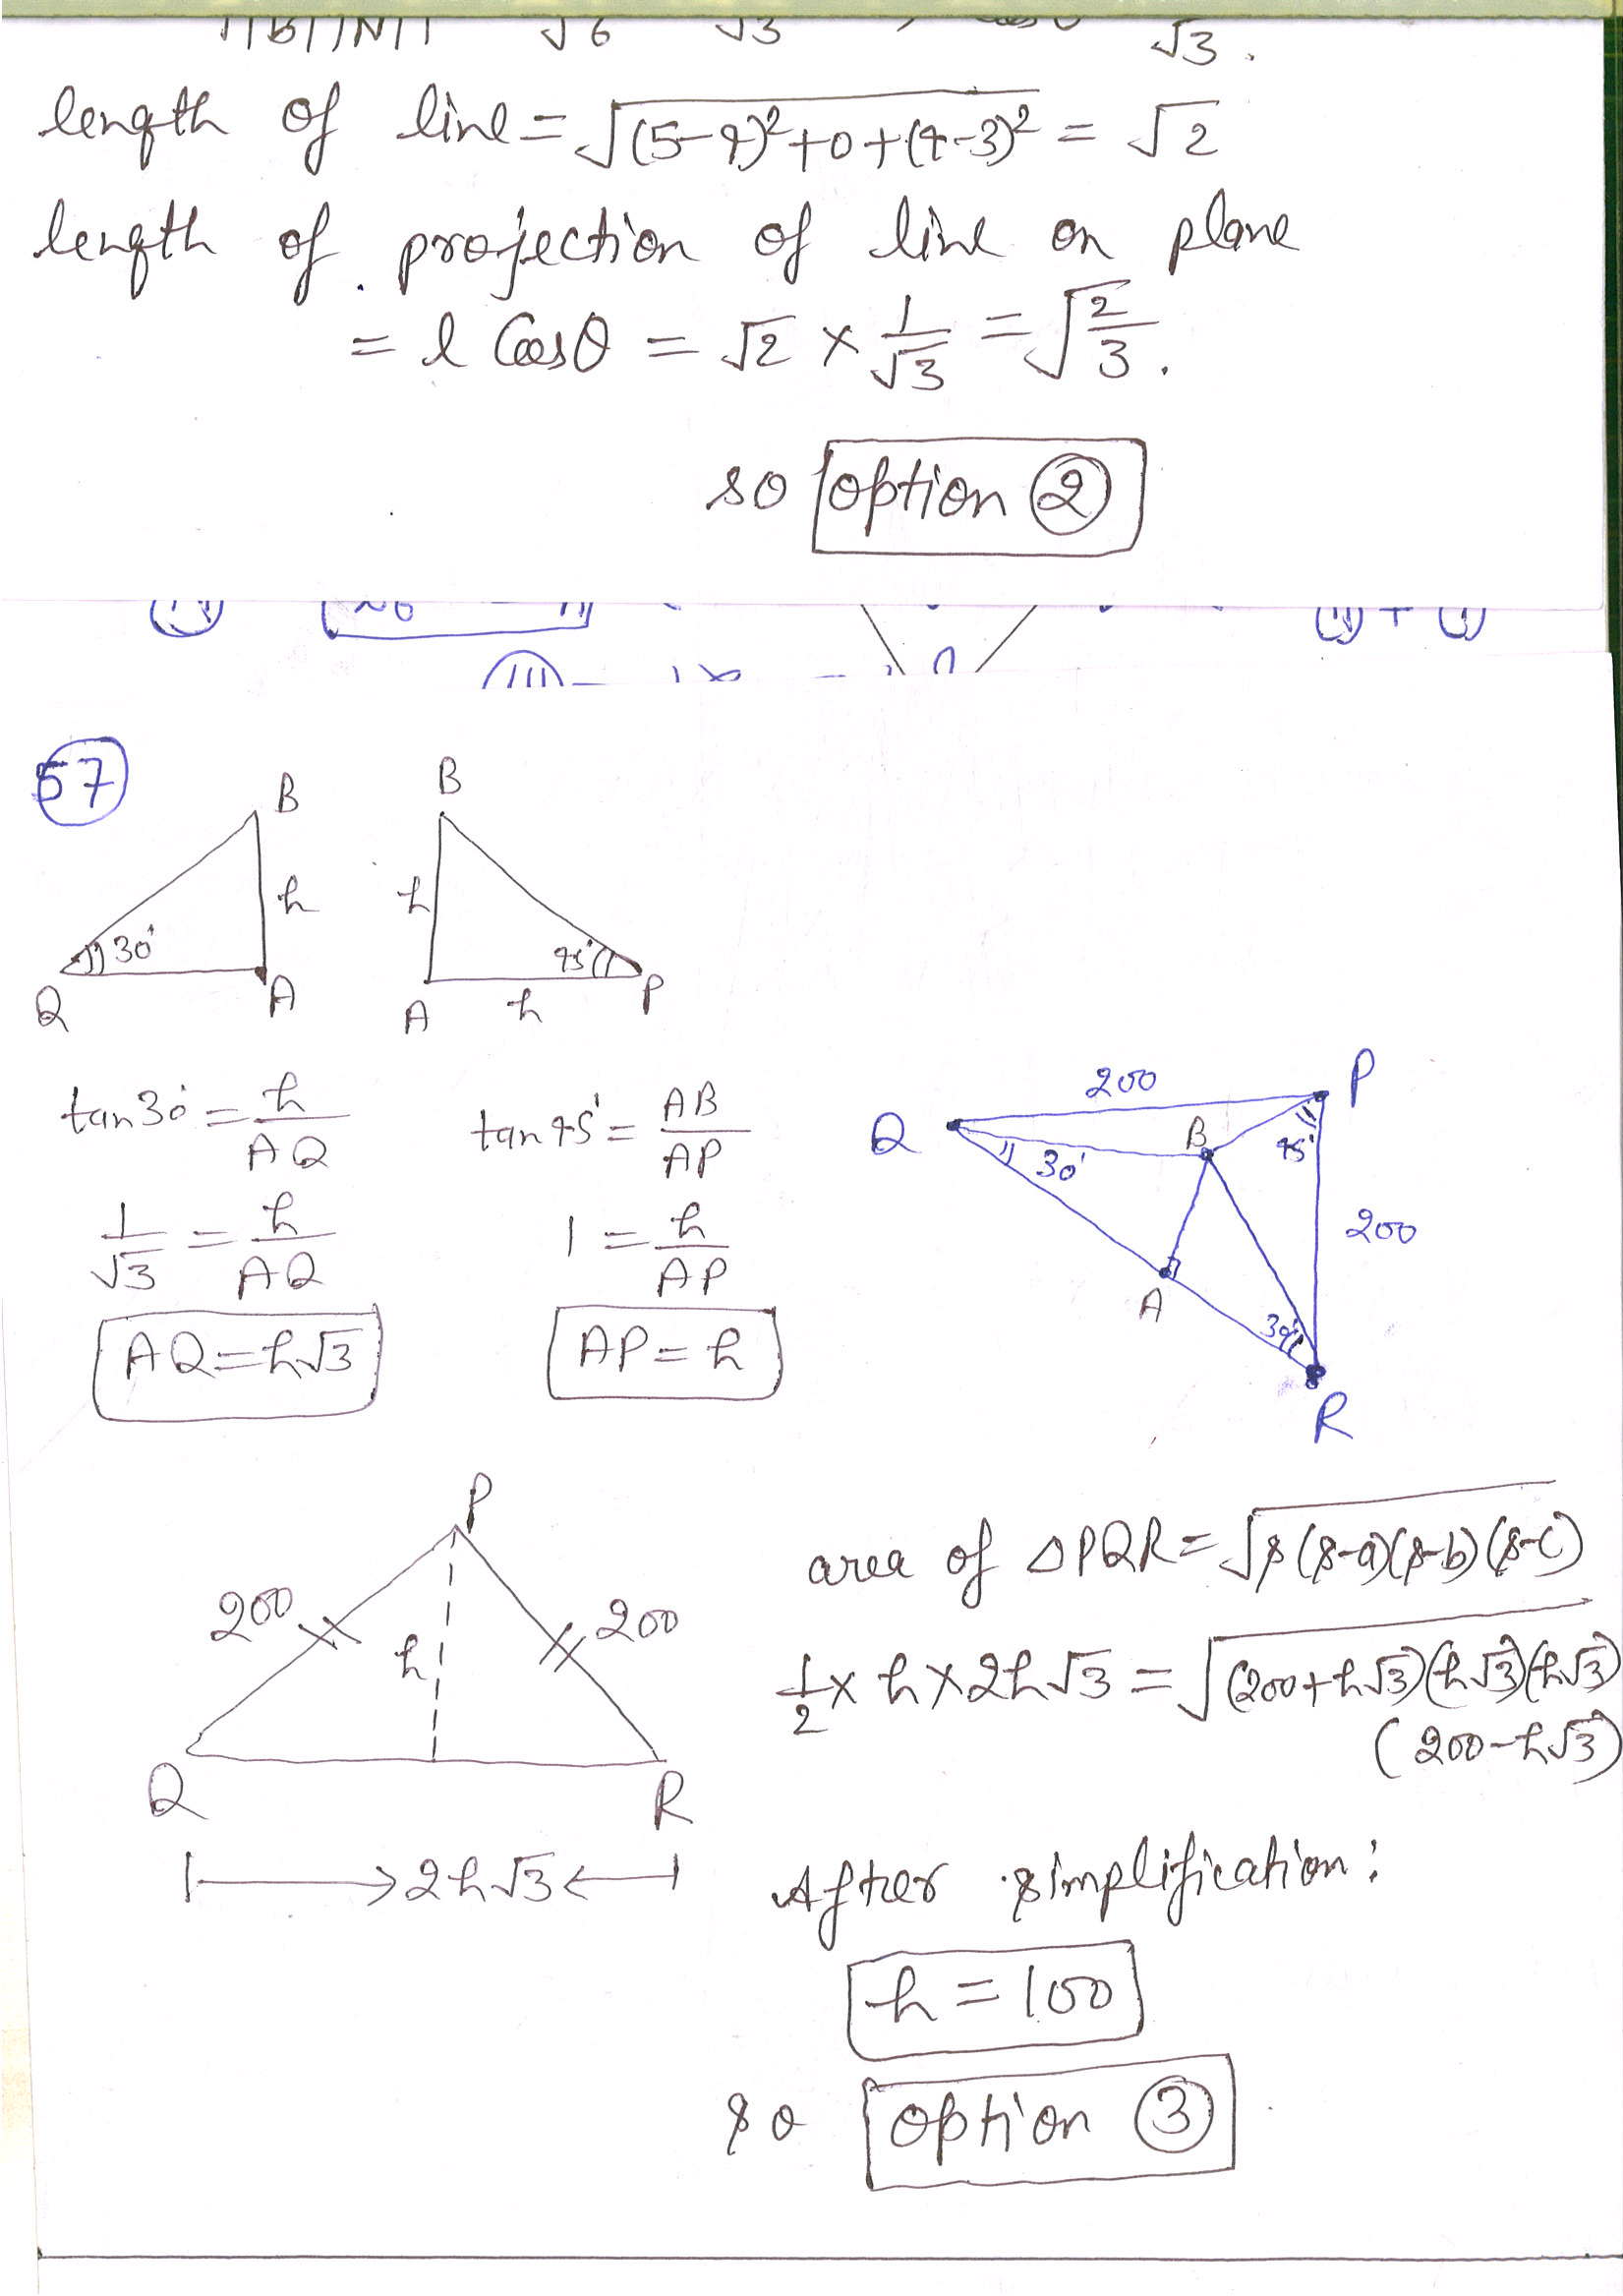 √6 √3 √3.
length of line = √(5-4)²+0+(4-3)² = √2
length of projection of line on plane
= l Cosθ = √2 × 1/√3 = √2/3.
so option ②
57
B
h
30°
Q A
B
h
45°
A h P
tan30° = h/AQ
1/√3 = h/AQ
AQ = h√3
tan45° = AB/AP
1 = h/AP
AP = h
200 P
Q B
30° 45°
200
A
30°
R
P
200 200
h
Q R
2h√3
area of △PQR = √s(s-a)(s-b)(s-c)
1/2 × h × 2h√3 = √(200+h√3)(h√3)(h√3)
(200-h√3)
After simplification:
h = 100
so option ③